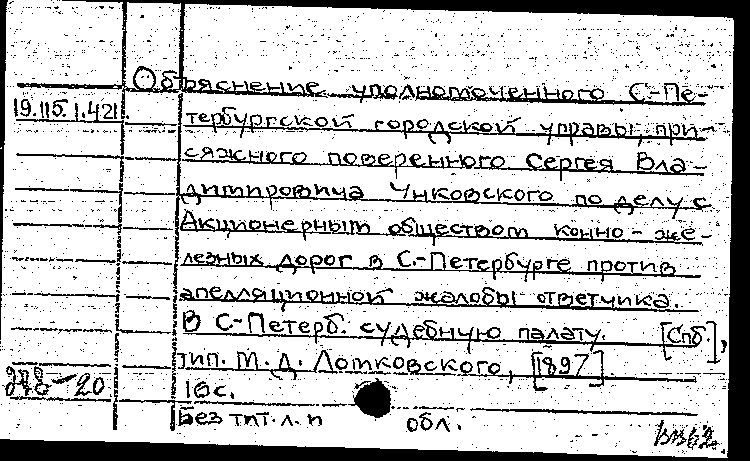 Объяснение уполномоченного С-Пе-
19.115.1.421.
тербургской городской управы, при-
сяжного поверенного Сергея Вла-
димировича Унковского по делу с
Акционерным обществом конно-же-
лезных дорог в С.-Петербурге против
апелляционной жалобы ответчика.
В С-Петерб. судебную палату. [Спб.],
тип. М.Д. Ломковского, [1897].
16с.
Без тит.л. и обл.